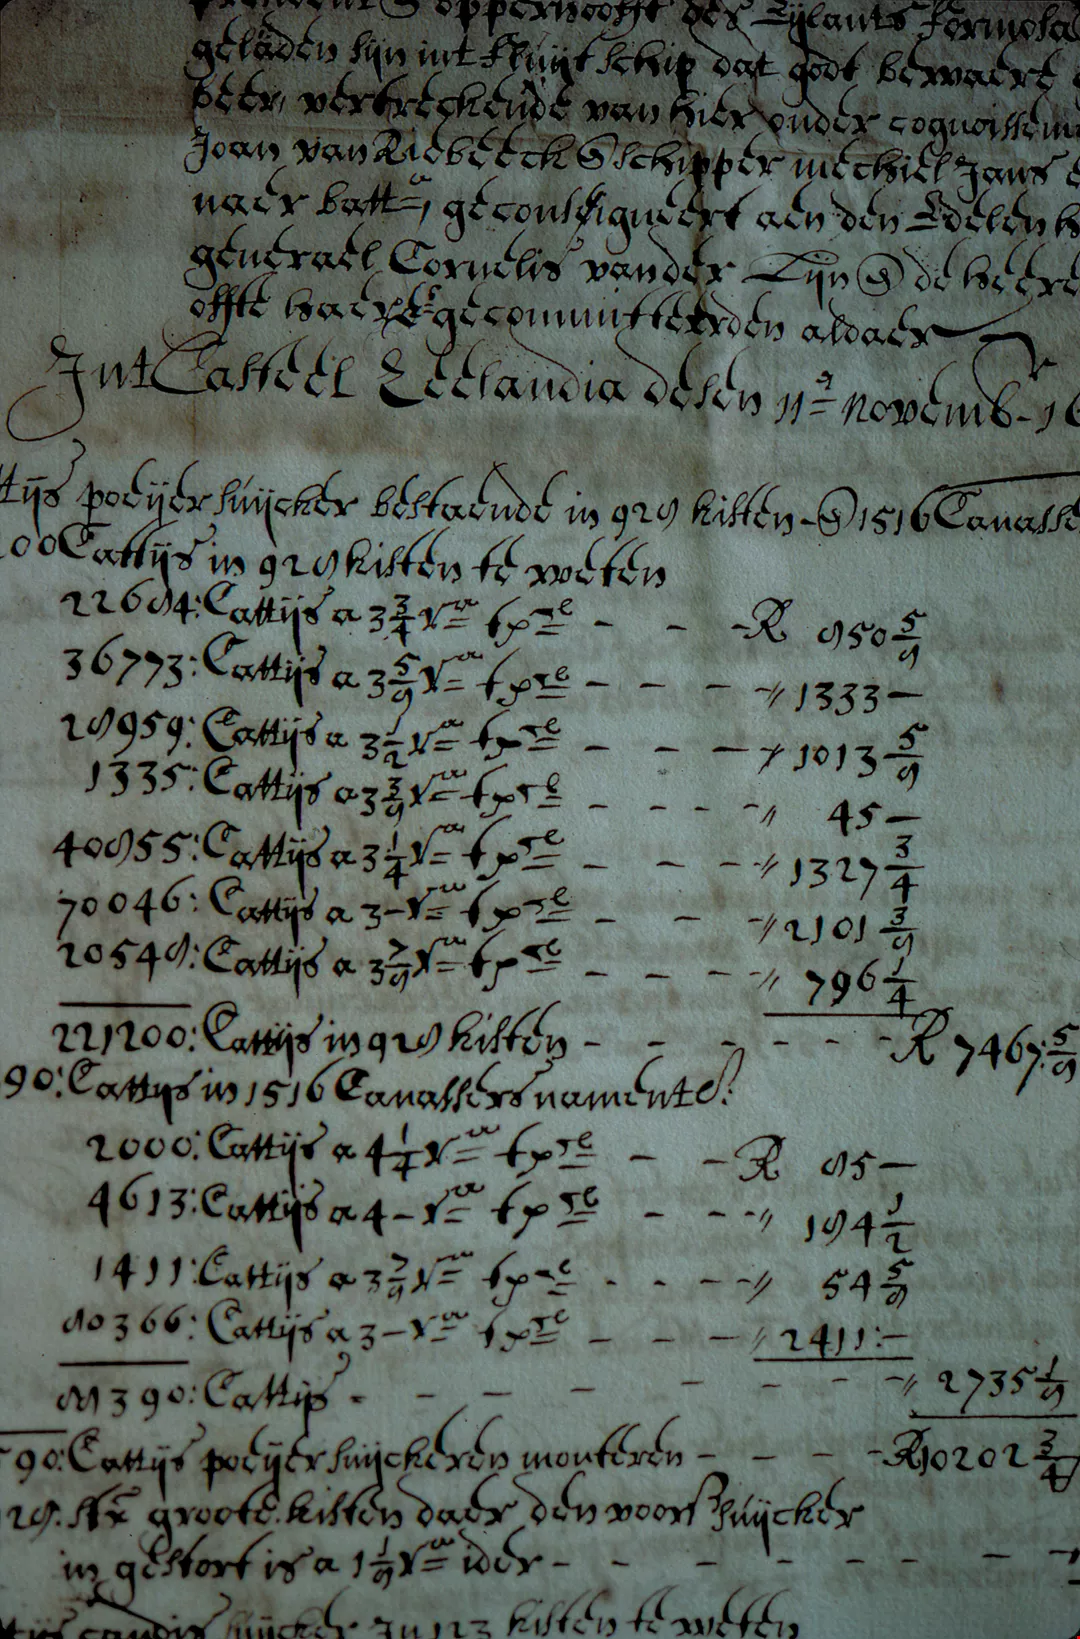 President & opperhoofft des Eijlants Formosa
geladen sijn int fluijtschip dat godt bewaere
beer, vertreckende van hier onder cognoissem
Joan van Riebeeck & schipper mechiel Jans
naer batt.ª, geconsigneert aen den Edelen h
generael Cornelis vander Lijn & de heere
offte haer E gecommitteerden aldaer
Int Casteel Zeelandia desen 11.ª novemb. 16
ttijs poeijersuijcker bestaende in 928 kisten & 1516 Canasse
00 Cattijs in 928 kisten te weten
22684: Cattijs a 3 3/4 Rª tp cl - - - R 850 5/8
36773: Cattijs a 3 5/8 Rª tp cl - - - - " 1333 —
28959: Cattijs a 3 1/2 Rª tp cl - - - - " 1013 5/8
1335: Cattijs a 3 3/8 Rª tp cl - - - - " 45 —
40855: Cattijs a 3 1/4 Rª tp cl - - - - " 1327 3/4
70046: Cattijs a 3 - Rª tp cl - - - - " 2101 3/8
20548: Cattijs a 3 7/8 Rª tp cl - - - - " 796 1/4
221200: Cattijs in 928 kisten - - - - - - - R 7467: 5/8
90: Cattijs in 1516 Canassers namentl:
2000: Cattijs a 4 1/4 Rª tp cl - - R 85 —
4613: Cattijs a 4 - Rª tp cl - - - " 184 1/2
1411: Cattijs a 3 7/8 Rª tp cl - - - - " 54 5/8
80366: Cattijs a 3 - Rª tp cl - - - - " 2411: —
88390: Cattijs - - - - - - - - " 2735 1/8
90: Cattijs poeijersuijckeren monteren - - - - R 10202 3/4
28. stx groote kisten daer den voors suijcker
in gestort is a 1 1/8 Rª ider - - - - - - - -
ttijs candijsuijcker In 123 kisten te weten